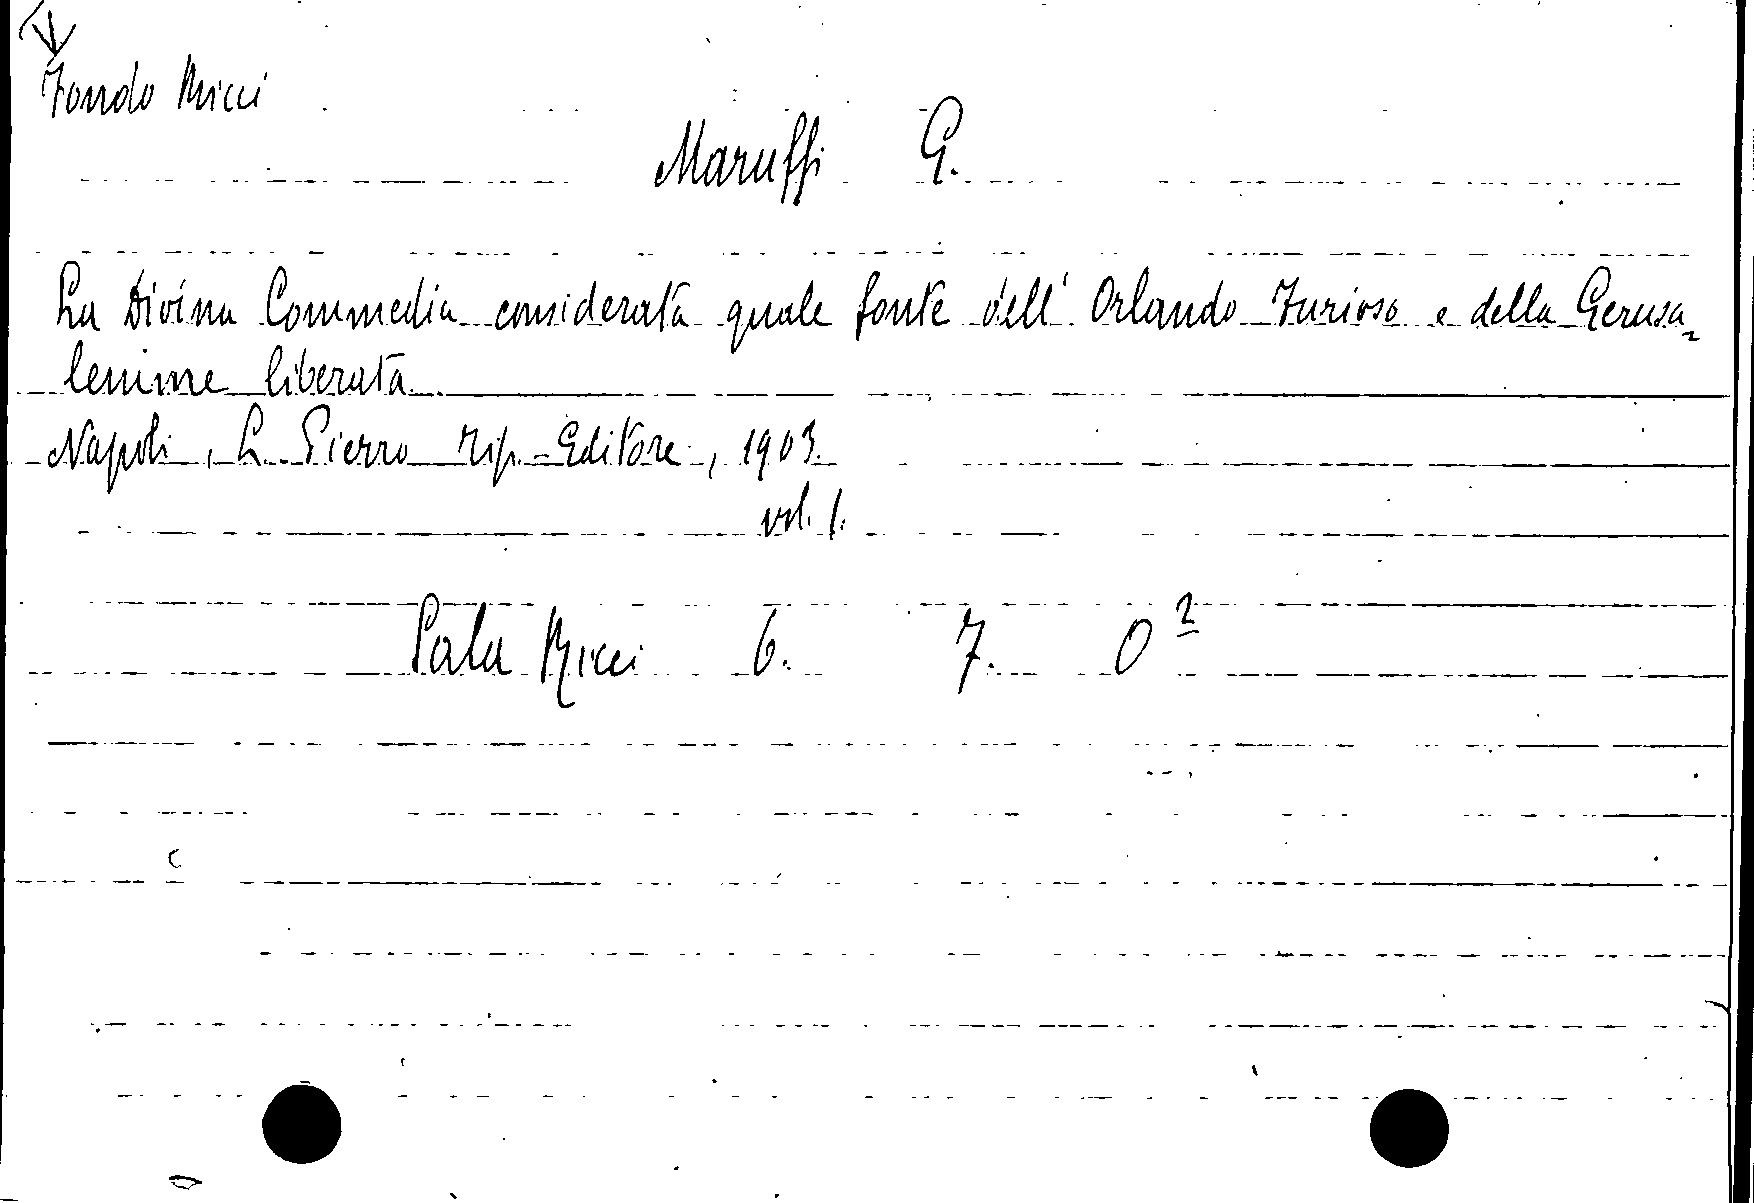 Fondo Ricci
Maruffi G.
La Divina Commedia considerata quale fonte dell' Orlando Furioso e della Gerusa=
lemme liberata
Napoli, L. Pierro Tip.-Editore, 1903.
vol. 1.
Sala Ricci 6. 7. O²